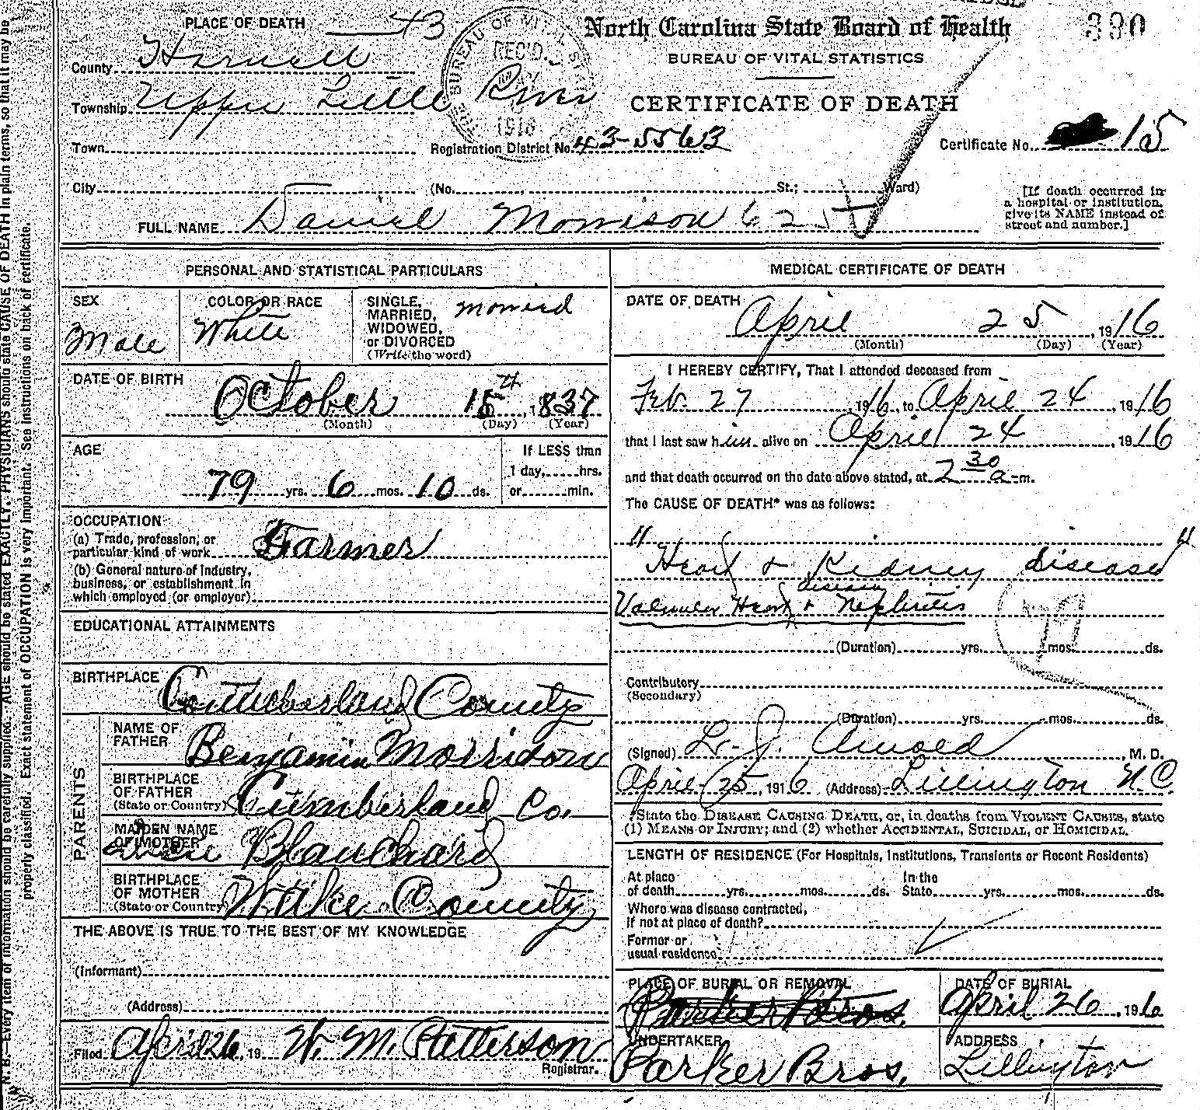 N. B.—Every item of information should be carefully supplied. AGE should be stated EXACTLY. PHYSICIANS should state CAUSE OF DEATH in plain terms, so that it may be
properly classified. Exact statement of OCCUPATION is very important. See instructions on back of certificate.
PLACE OF DEATH 43
County Harnett
Township Upper Little River
Town
City (No. St.; Ward)
FULL NAME Daniel Morrison 62
BUREAU OF VITAL STATISTICS
REC'D.
1916
North Carolina State Board of Health
BUREAU OF VITAL STATISTICS
CERTIFICATE OF DEATH
390
Registration District No. 43-5563
Certificate No. 15
[If death occurred in
a hospital or institution,
give its NAME instead of
street and number.]
PERSONAL AND STATISTICAL PARTICULARS
SEX
Male
COLOR OR RACE
White
SINGLE,
MARRIED,
WIDOWED,
or DIVORCED
(Write the word)
DATE OF BIRTH
October 15 1837
(Month) (Day) (Year)
AGE
79 yrs. 6 mos. 10 ds.
If LESS than
1 day, hrs.
or min.
OCCUPATION
(a) Trade, profession, or
particular kind of work Farmer
(b) General nature of industry,
business, or establishment in
which employed (or employer)
EDUCATIONAL ATTAINMENTS
BIRTHPLACE Cumberland County
PARENTS
NAME OF
FATHER Benjamin Morrison
BIRTHPLACE
OF FATHER
(State or Country) Cumberland Co.
MAIDEN NAME
OF MOTHER Blanchard
BIRTHPLACE
OF MOTHER
(State or Country) Wake County
THE ABOVE IS TRUE TO THE BEST OF MY KNOWLEDGE
(Informant)
(Address)
Filed April 26, 19 W. M. Patterson
Registrar.
MEDICAL CERTIFICATE OF DEATH
DATE OF DEATH
April 25, 1916
(Month) (Day) (Year)
I HEREBY CERTIFY, That I attended deceased from
Feb. 27 1916, to April 24, 1916
that I last saw him alive on April 24 1916
and that death occurred on the date above stated, at 2 30 a m.
The CAUSE OF DEATH* was as follows:
" "
Heart & Kidney disease
disease
Valvular Heart & Nephritis
(Duration) yrs. mos. ds.
Contributory
(Secondary)
(Duration) yrs. mos. ds.
(Signed) L. J. Arnold M. D.
April 25 1916 (Address) Lillington N.C.
*State the DISEASE CAUSING DEATH, or, in deaths from VIOLENT CAUSES, state
(1) MEANS OF INJURY; and (2) whether ACCIDENTAL, SUICIDAL, or HOMICIDAL.
LENGTH OF RESIDENCE (For Hospitals, Institutions, Transients or Recent Residents)
At place
of death yrs. mos. ds.
In the
State yrs. mos. ds.
Where was disease contracted,
if not at place of death?
Former or
usual residence
PLACE OF BURIAL OR REMOVAL
Parker Bros.
DATE OF BURIAL
April 26 1916
UNDERTAKER
Parker Bros.
ADDRESS
Lillington